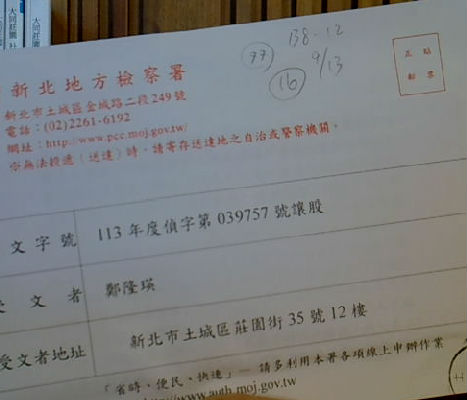 大同莊園
大同莊園 社
138-12
77
9/13
16
新北地方檢察署
新北市土城區金城路二段249號
電話：(02)2261-6192
網址：http://www.pcc.moj.gov.tw/
無法投遞（送達）時，請寄存送達地之自治或警察機關。
文字號
113年度偵字第039757號讓股
文者
鄭隆瑛
受文者地址
新北市土城區莊園街35號12樓
「省時、便民、快速」—請多利用本署各項線上申辦作業
moj.gov.tw